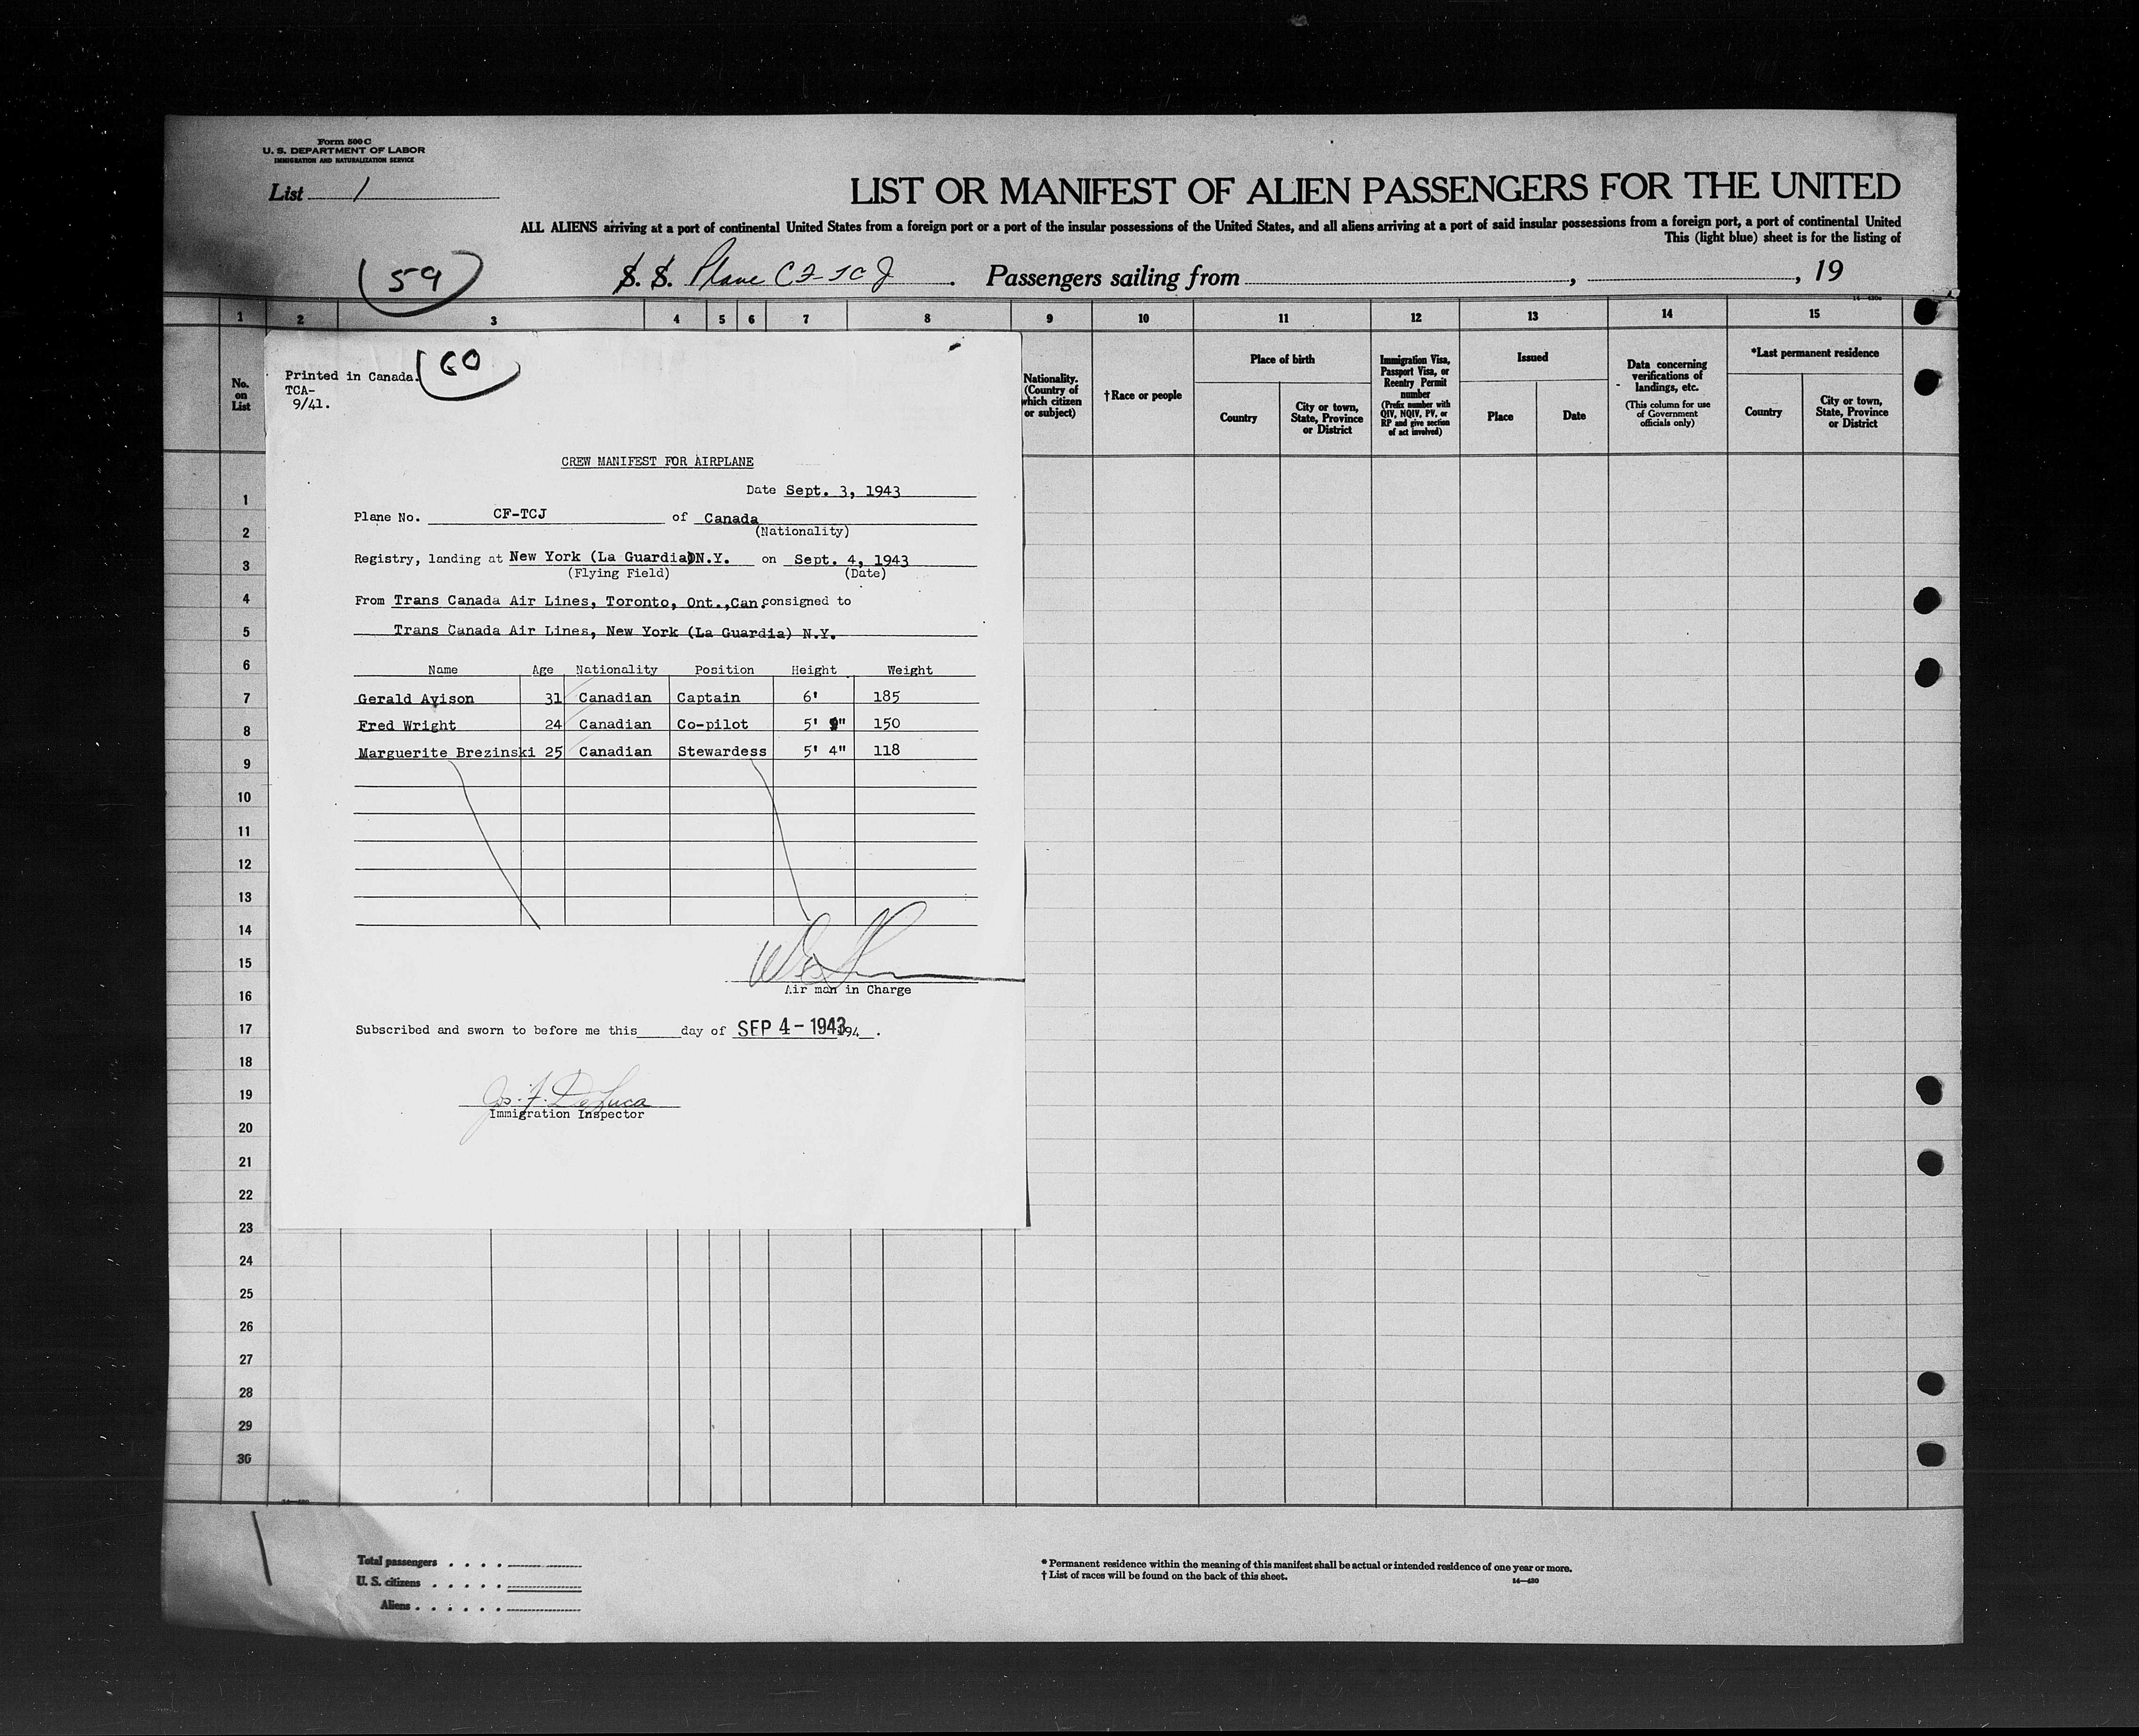 Form 500 C
U. S. DEPARTMENT OF LABOR
IMMIGRATION AND NATURALIZATION SERVICE
List 1
LIST OR MANIFEST OF ALIEN PASSENGERS FOR THE UNITED
ALL ALIENS arriving at a port of continental United States from a foreign port or a port of the insular possessions of the United States, and all aliens arriving at a port of said insular possessions from a foreign port, a port of continental United
This (light blue) sheet is for the listing of
(59) S. S. Plane CF-TCJ. Passengers sailing from , , 19
1 2 3 4 5 6 7 8 9 10 11 12 13 14 15
No. on List
Nationality. (Country of which citizen or subject)
† Race or people
Place of birth
Country
City or town, State, Province or District
Immigration Visa, Passport Visa, or Reentry Permit number
(Prefix number with QIV, NQIV, PV, or RP and give section of act involved)
Issued
Place
Date
Data concerning verifications of landings, etc.
(This column for use of Government officials only)
*Last permanent residence
Country
City or town, State, Province or District
(60
Printed in Canada.
TCA-
9/41.
CREW MANIFEST FOR AIRPLANE
Date Sept. 3, 1943
Plane No. CF-TCJ of Canada
(Nationality)
Registry, landing at New York (La Guardia)N.Y. on Sept. 4, 1943
(Flying Field) (Date)
From Trans Canada Air Lines, Toronto, Ont.,Can.consigned to
Trans Canada Air Lines, New York (La Guardia) N.Y.
Name Age Nationality Position Height Weight
Gerald Avison 31 Canadian Captain 6' 185
Fred Wright 24 Canadian Co-pilot 5' 9" 150
Marguerite Brezinski 25 Canadian Stewardess 5' 4" 118
Air man in Charge
Subscribed and sworn to before me this day of SEP 4 - 1943 194 .
Jos. F. DeLuca
Immigration Inspector
1
2
3
4
5
6
7
8
9
10
11
12
13
14
15
16
17
18
19
20
21
22
23
24
25
26
27
28
29
30
Total passengers . . . .
U. S. citizens . . . . .
Aliens . . . . . .
* Permanent residence within the meaning of this manifest shall be actual or intended residence of one year or more.
† List of races will be found on the back of this sheet.
14—430